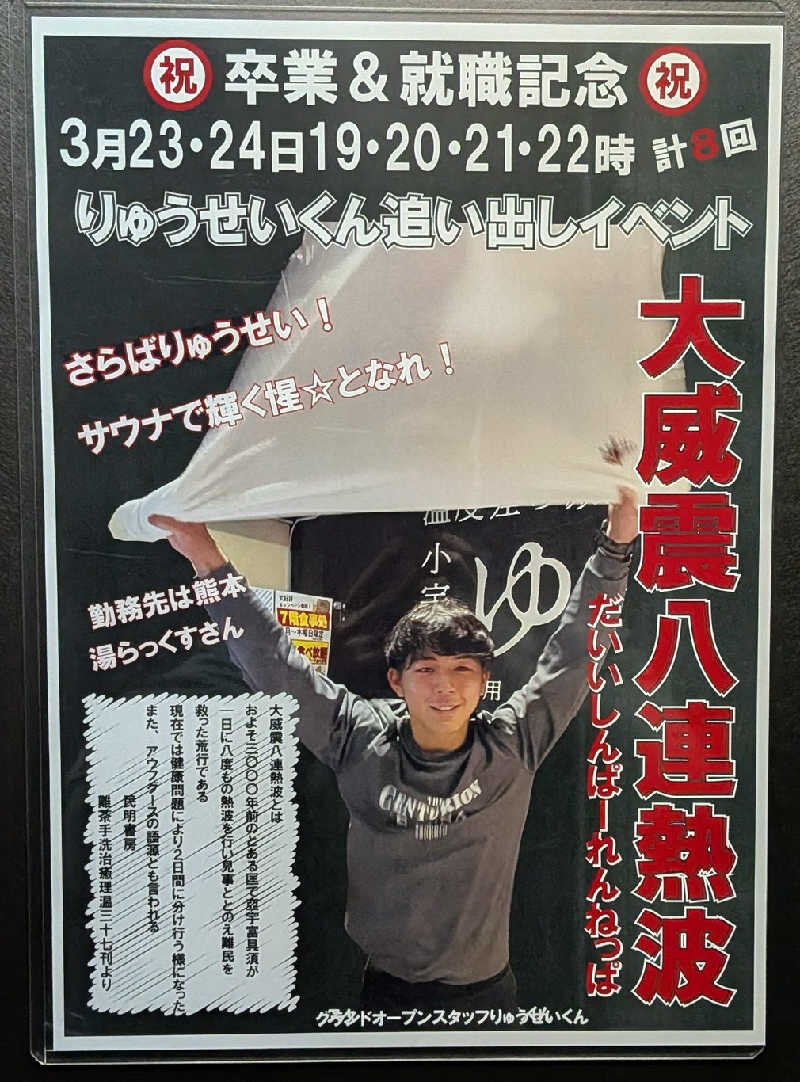 祝 卒業&就職記念 祝
3月23・24日19・20・21・22時 計8回
りゅうせいくん追い出しイベント
さらばりゅうせい!
サウナで輝く惺☆となれ!
大威震八連熱波
だいいしんぱーれんねっぱ
小宇
ゆ
用
7階食事処
食べ放題
勤務先は熊本
湯らっくすさん
CENTURION
大威震八連熱波とは
およそ三〇〇〇年前のとある国で庭宇富具須が
一日に八度もの熱波を行い見事ととのえ難民を
救った荒行である
現在では健康問題により2日間に分け行う様になった
また、アウフグースの語源とも言われる
民明書房
難茶手洗治癒理温三十七刊より
グランドオープンスタッフりゅうせいくん